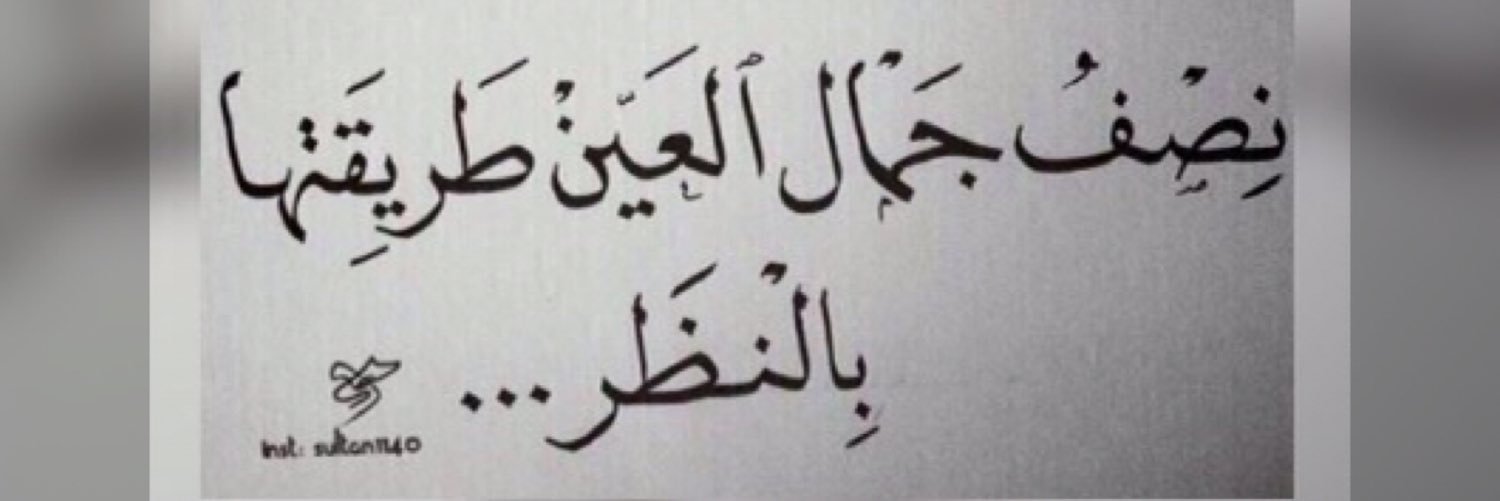 نِصْفُ جَمْال ٱلعَيّنْ طَرِيقَتْها
بِالْنظَر...
inst: sultan1140